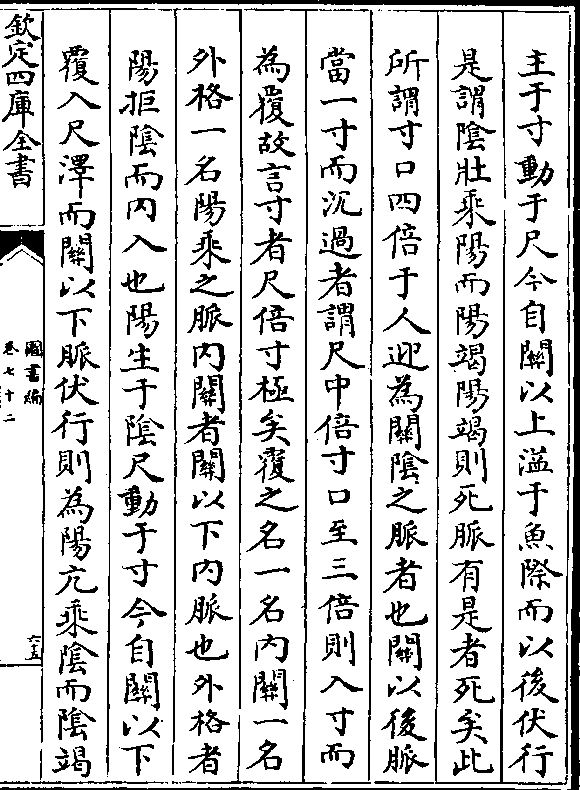 主于寸動于尺今自關以上溢于魚際而以後伏行
是謂陰壯乘陽而陽竭陽竭則死脈有是者死矣此
所謂寸口四倍于人迎為關陰之脈者也關以後脈
當一寸而沉過者謂尺中倍寸口至三倍則入寸而
為覆故言寸者尺倍寸極矣覆之名一名內關一名
外格一名陽乘之脈內關者關以下內脈也外格者
陽拒陰而內入也陽生于陰尺動于寸今自關以下
覆入尺澤而關以下脈伏行則為陽亢乘陰而陰竭
欽定四庫全書
圖書編
卷七十二
六五